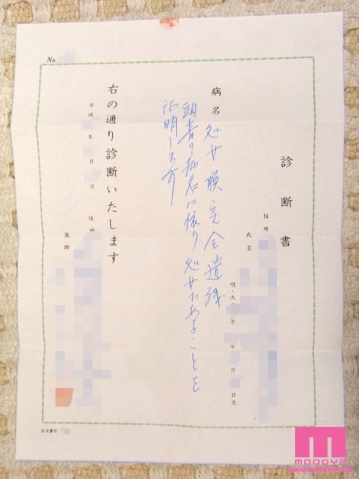 診断書
住所
氏名
明・大・ 年 月 日生
病名 処女膜完全遺残
頭書の病名に依り処女であることを
証明します
右の通り診断いたします
平成 年 月 日
住所
医師
No.
m
MOODYZ